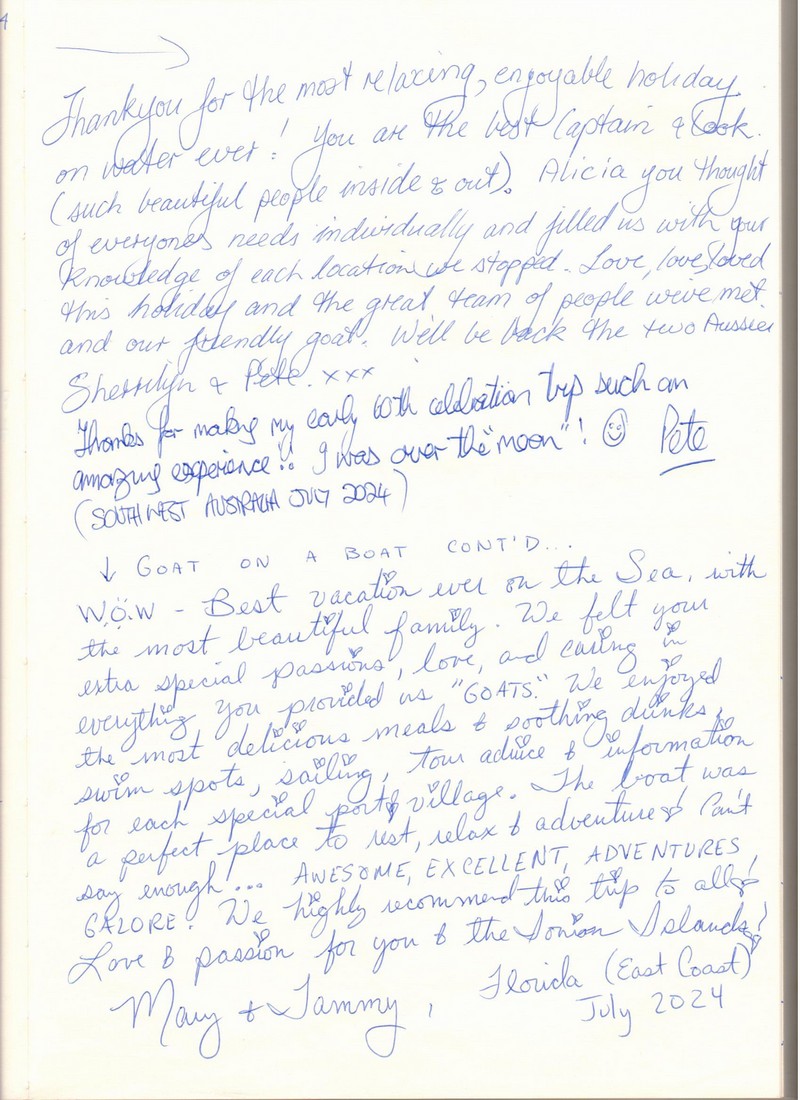 4
Thankyou for the most relaxing, enjoyable holiday
on water ever! You are the best Captain & Cook.
(such beautiful people inside & out). Alicia you thought
of everyones needs individually and filled us with your
knowledge of each location we stopped. Love, love, loved
this holiday and the great team of people weve met.
and our friendly goat. We'll be back the two Aussies
Sherrilyn & Pete. xxx
Thanks for making my early 60th celebration trip such an
amazing experience!! I was over the "moon"! Pete
(SOUTH WEST AUSTRALIA JULY 2024)
↓ GOAT ON A BOAT CONT'D...
W.O.W - Best vacation ever on the Sea, with
the most beautiful family. We felt your
extra special passions, love, and caring in
everything you provided us "GOATS." We enjoyed
the most delicious meals & soothing drinks,
swim spots, sailing, tour advice & information
for each special port, village. The boat was
a perfect place to rest, relax & adventure! Can't
say enough... AWESOME, EXCELLENT, ADVENTURES
GALORE! We highly recommend this trip to all!
Love & passion for you & the Ionion Islands!
Mary & Tammy, Florida (East Coast)
July 2024